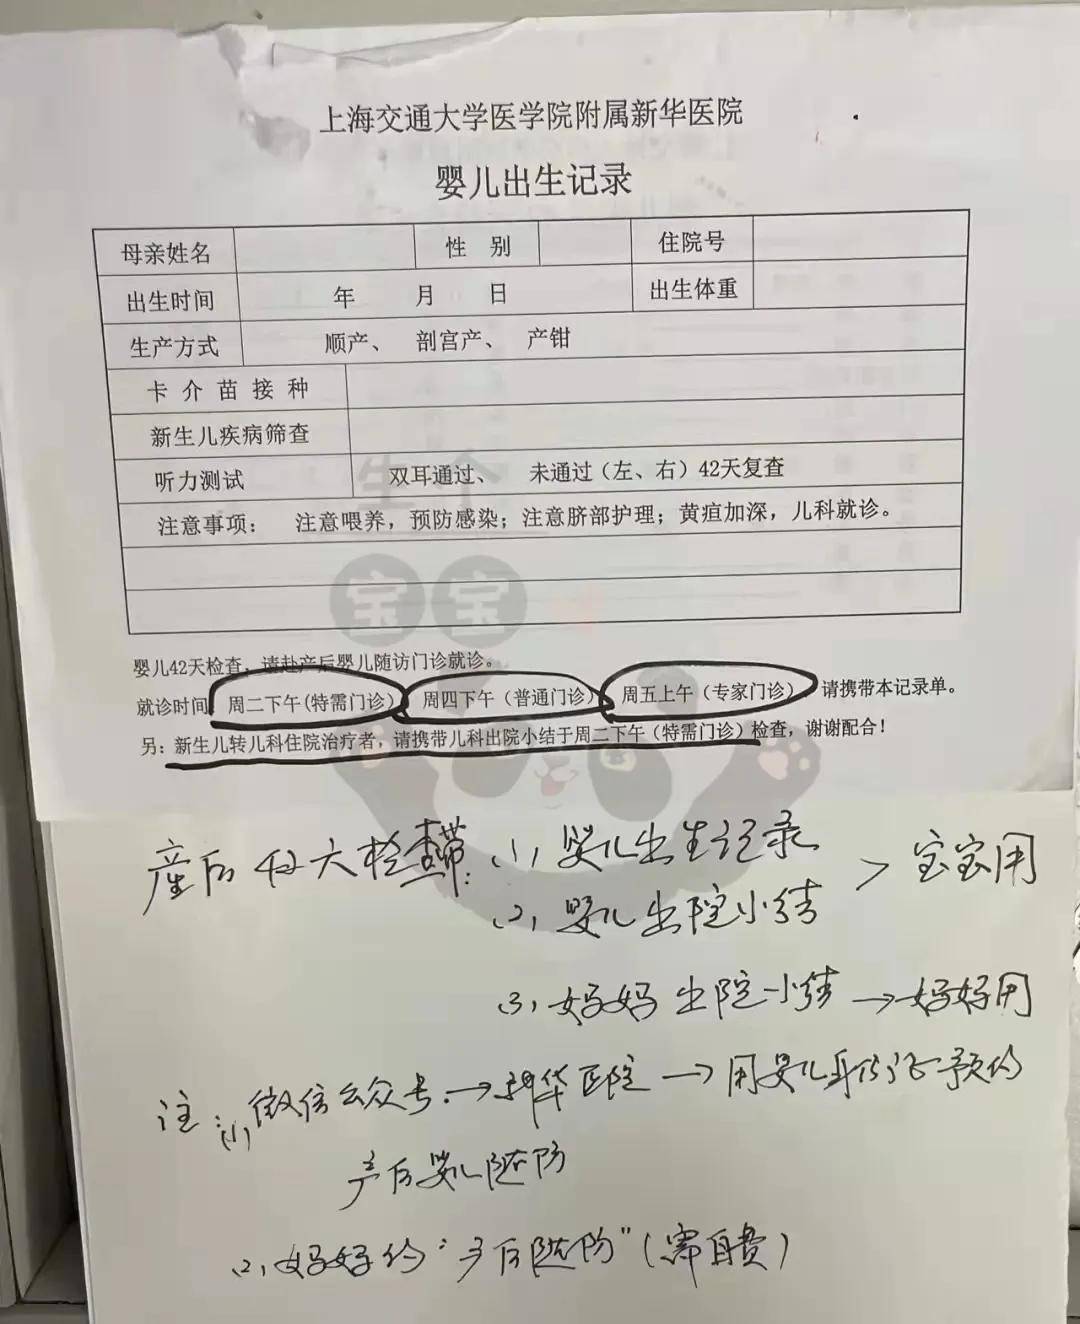 上海交通大学医学院附属新华医院
婴儿出生记录
母亲姓名 性 别 住院号
出生时间 年 月 日 出生体重
生产方式 顺产、 剖宫产、 产钳
卡介苗接种
新生儿疾病筛查
听力测试 双耳通过、 未通过（左、右）42天复查
注意事项： 注意喂养，预防感染；注意脐部护理；黄疸加深，儿科就诊。
生个
宝宝
婴儿42天检查，请赴产后婴儿随访门诊就诊。
就诊时间 周二下午(特需门诊) 周四下午（普通门诊） 周五上午（专家门诊） 请携带本记录单。
另：新生儿转儿科住院治疗者，请携带儿科出院小结于周二下午（特需门诊）检查，谢谢配合！
产后42天检查带：(1)，婴儿出生记录
(2)，婴儿出院小结 > 宝宝用
(3)，妈妈出院小结 → 妈妈用
注：(1)，微信公众号 → 新华医院 → 用婴儿身份证预约
产后婴儿随访
(2)，妈妈约“产后随访”（需自费）